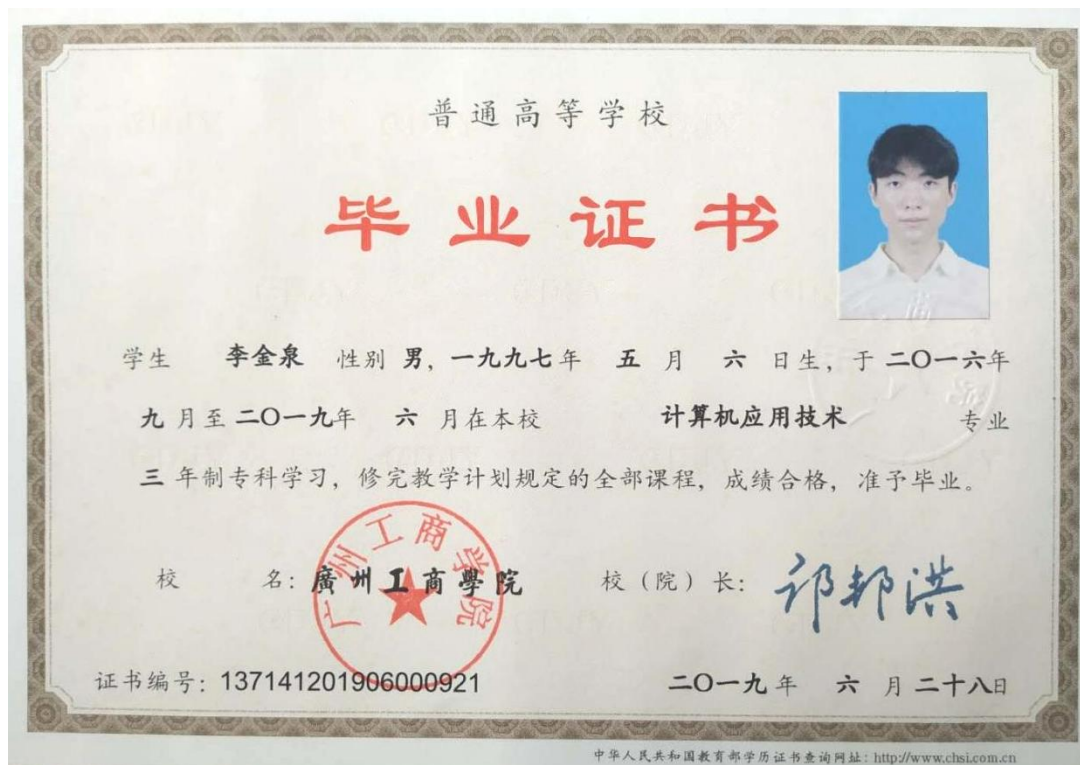 普通高等学校
毕业证书
学生 李金泉 性别 男，一九九七年 五 月 六 日生，于 二〇一六年
九 月至 二〇一九年 六 月在本校 计算机应用技术 专业
三 年制专科学习，修完教学计划规定的全部课程，成绩合格，准予毕业。
校 名：廣州工商學院 校（院）长：邝邦洪
广州工商学院
证书编号：137141201906000921 二〇一九 年 六 月 二十八日
中华人民共和国教育部学历证书查询网址：http://www.chsi.com.cn